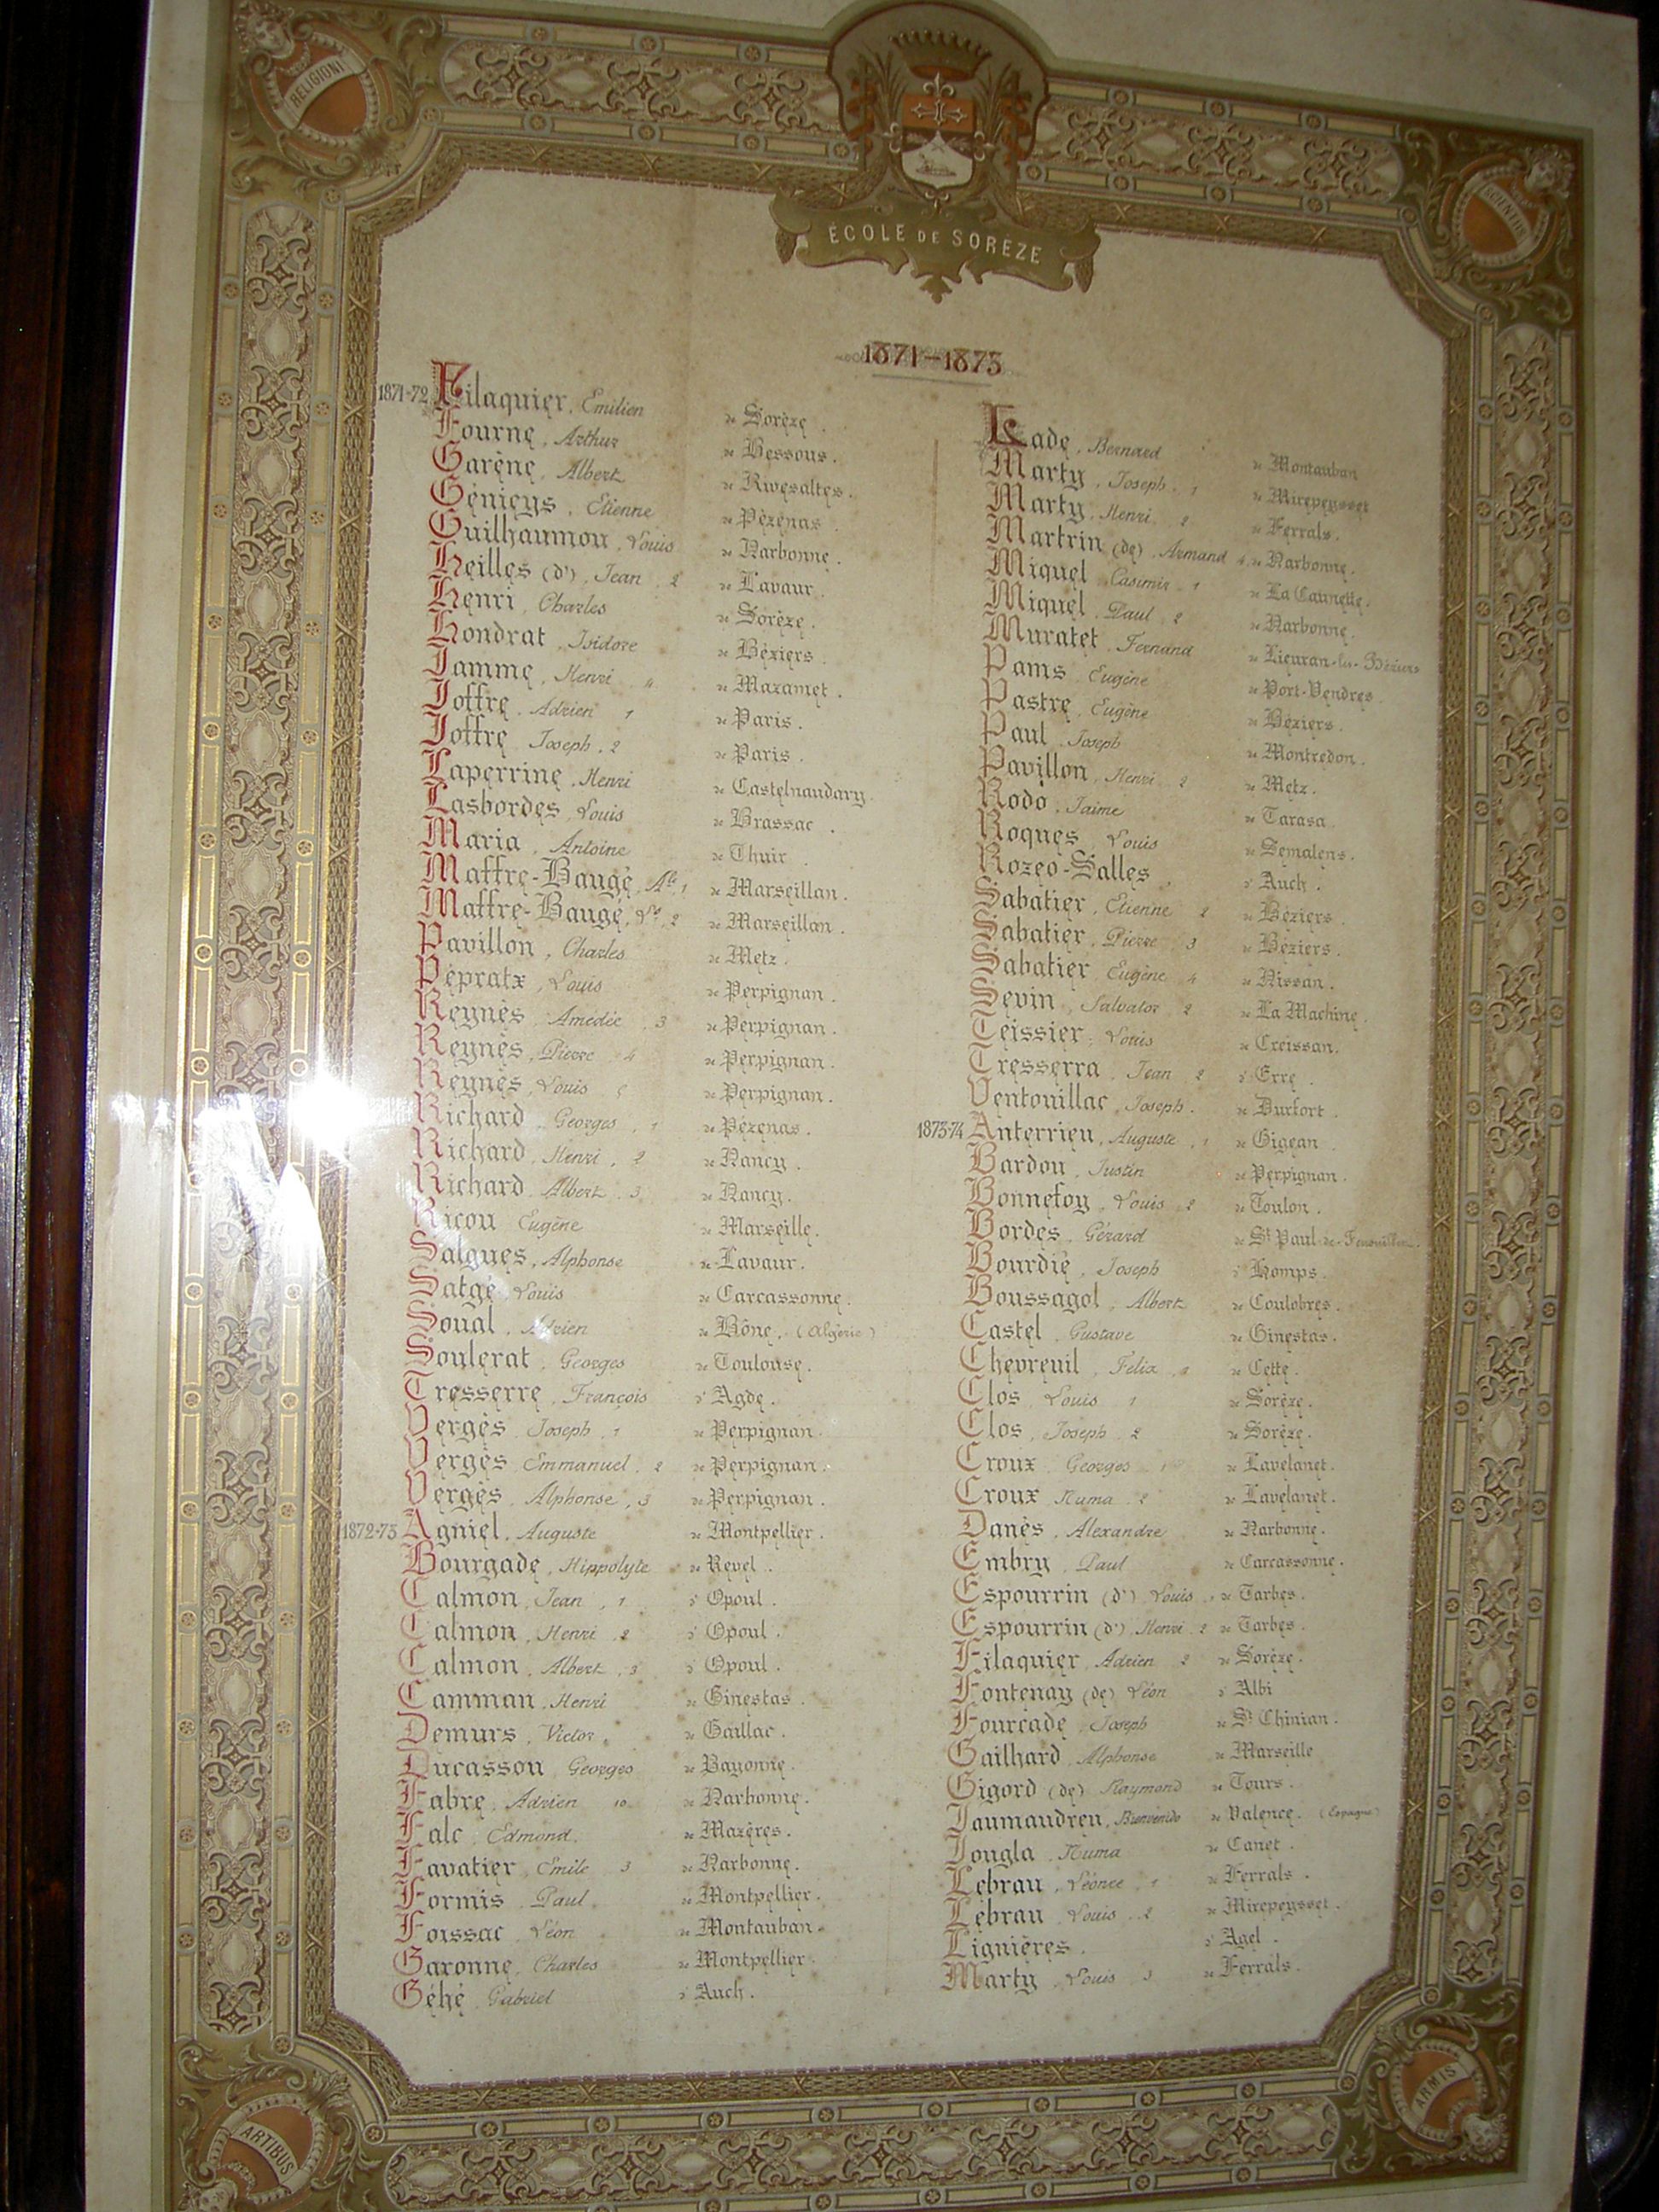 RELIGIONI
SCIENTIÆ
ÉCOLE DE SORÈZE
1871-1873
1871-72 Filaquier, Emilien de Sorèze.
Fourne, Arthur de Bessous.
Garène, Albert de Rivesaltes.
Génieys, Etienne de Pézenas.
Guilhaumou, Louis de Narbonne.
Heilles (d'), Jean 2 de Lavaur.
Henri, Charles de Sorèze.
Hondrat, Isidore de Béziers.
Jamme, Henri 4 de Mazamet.
Joffre, Adrien 1 de Paris.
Joffre, Joseph, 2 de Paris.
Laperrine, Henri de Castelnaudary.
Lasbordes, Louis de Brassac.
Maria, Antoine de Thuir
Maffre-Baugé, Ate, 1 de Marseillan.
Maffre-Baugé, Ls, 2 de Marseillan.
Pavillon, Charles de Metz.
Pépratx, Louis de Perpignan.
Reynès, Amédée, 3 de Perpignan.
Reynès, Pierre 4 de Perpignan.
Reynès, Louis 5 de Perpignan.
Richard, Georges, 1 de Pézenas.
Richard, Henri, 2 de Nancy.
Richard, Albert, 3 de Nancy.
Ricou Eugène de Marseille.
Salgues, Alphonse de Lavaur.
Satgé, Louis de Carcassonne.
Soual, Adrien de Bône, (Algérie)
Soulerat, Georges de Toulouse.
Tresserre, François d' Agde.
Vergès, Joseph, 1 de Perpignan.
Vergès Emmanuel, 2 de Perpignan.
Vergès, Alphonse, 3 de Perpignan.
1872-73 Agniel, Auguste de Montpellier.
Bourgade, Hippolyte de Revel.
Calmon, Jean, 1 d' Opoul.
Calmon, Henri 2 d' Opoul.
Calmon, Albert, 3 d' Opoul.
Camman, Henri de Ginestas.
Demurs, Victor, de Gaillac.
Ducasson Georges de Bayonne.
Fabre, Adrien 10 de Narbonne.
Falc, Edmond. de Mazères.
Favatier, Emile 3 de Narbonne.
Formis, Paul, de Montpellier.
Foissac, Léon de Montauban.
Garonne, Charles de Montpellier.
Géhé, Gabriel d' Auch.
Lade, Bernard de Montauban
Marty, Joseph, 1 de Mirepeysset
Marty, Henri, 2 de Ferrals.
Martrin (de), Armand 4 de Narbonne.
Miquel, Casimir, 1 de La Caunette.
Miquel, Paul, 2 de Narbonne.
Muratet, Fernand de Lieuran-lès-Béziers
Pams, Eugène de Port-Vendres
Pastre, Eugène de Béziers.
Paul, Joseph de Montredon.
Pavillon, Henri, 2 de Metz.
Rodo, Jaime de Tarasa
Roques, Louis de Semalens.
Rozéo-Salles, d' Auch.
Sabatier, Etienne 2 de Béziers.
Sabatier, Pierre 3 de Béziers.
Sabatier, Eugène 4 de Nissan.
Sevin, Salvator, 2 de La Machine.
Teissier, Louis de Creissan.
Tresserra, Jean 2 d' Erre.
Ventouillac, Joseph. de Durfort.
1873-74 Anterrieu, Auguste, 1 de Gigean
Bardou, Justin de Perpignan.
Bonnefoy, Louis, 2 de Toulon.
Bordes, Gérard de St Paul-de-Fenouillet.
Bourdié, Joseph d' Homps.
Boussagol, Albert de Coulobres.
Castel, Gustave de Ginestas.
Chevreuil, Felix, 1 de Cette.
Clos, Louis 1 de Sorèze.
Clos, Joseph, 2 de Sorèze.
Croux, Georges, 1 de Lavelanet.
Croux Numa, 2 de Lavelanet.
Danès, Alexandre de Narbonne.
Embry, Paul de Carcassonne.
Espourrin (d'), Louis, 1 de Tarbes.
Espourrin (d'), Henri, 2 de Tarbes.
Filaquier, Adrien 2 de Sorèze.
Fontenay (de) Léon d' Albi
Fourcade, Joseph de St Chinian.
Gailhard, Alphonse de Marseille
Gigord (de) Raymond de Tours.
Jaumandreu, Bienvenido de Valence. (Espagne)
Jougla, Numa de Canet.
Lebrau, Léonce, 1 de Ferrals.
Lebrau, Louis, 2 de Mirepeysset.
Lignières, d' Agel.
Marty, Louis 3 de Ferrals.
ARTIBUS
ARMIS